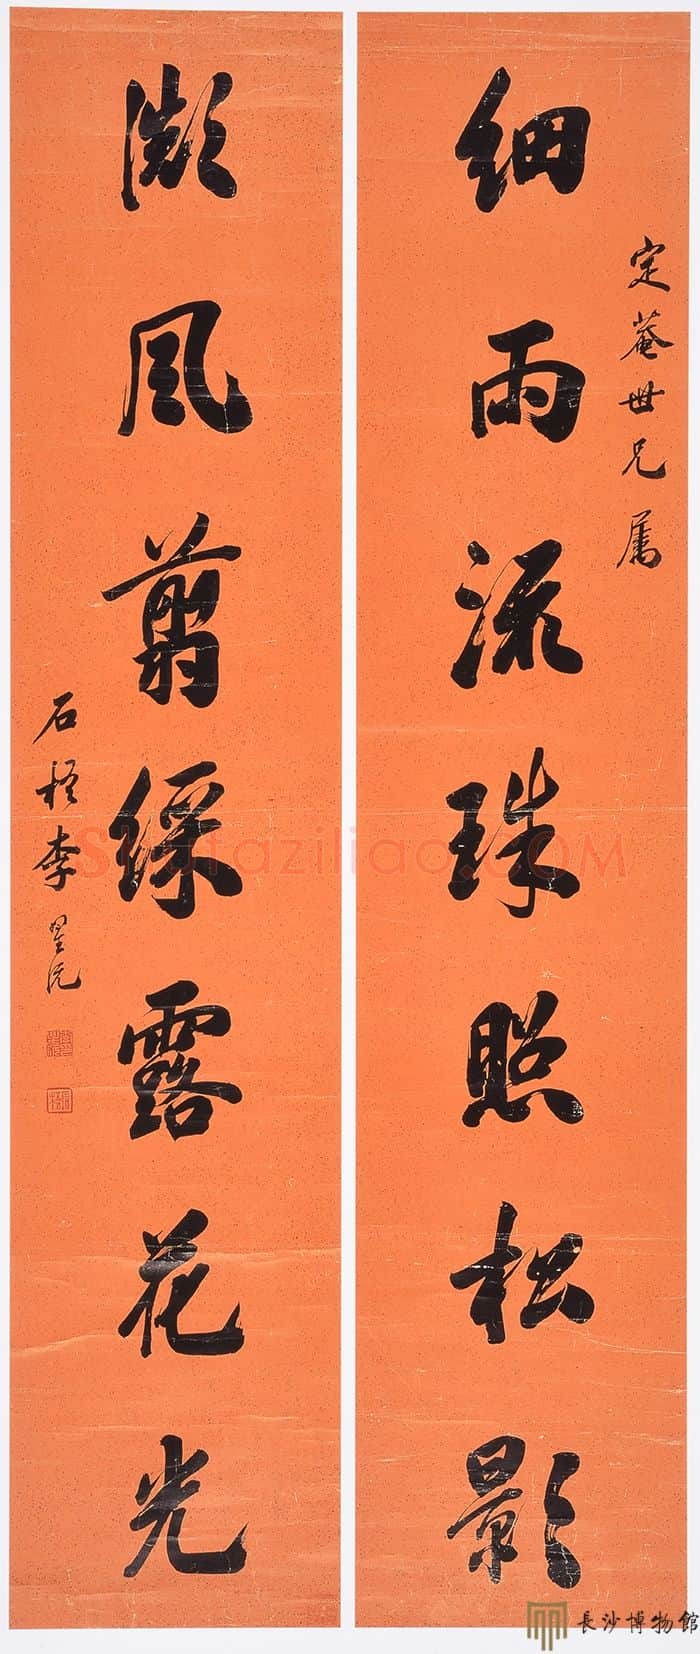 定菴世兄属
细雨流珠照松影
微风剪綵露花光
石梧李星沅
Shufaziliao.COM
長沙博物館